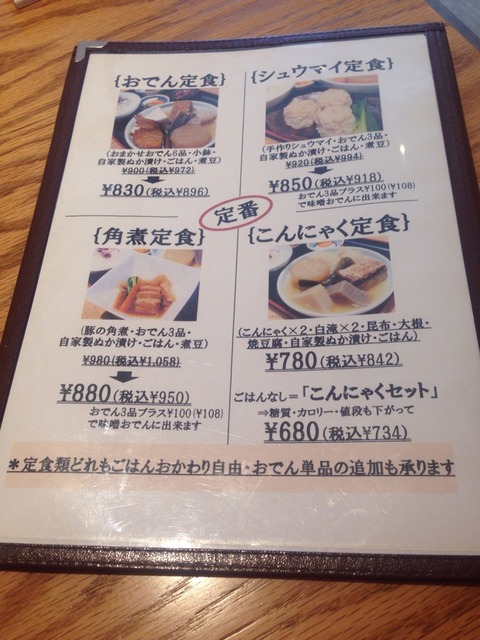 {おでん定食}
(おまかせおでん6品・小鉢・
自家製ぬか漬け・ごはん・煮豆)
¥900(税込¥972)
¥830(税込¥896)
{シュウマイ定食}
(手作りシュウマイ・おでん3品・
自家製ぬか漬け・ごはん・煮豆)
¥920(税込¥994)
¥850(税込¥918)
おでん3品プラス¥100(¥108)
で味噌おでんに出来ます
定番
{角煮定食}
(豚の角煮・おでん3品・
自家製ぬか漬け・ごはん・煮豆)
¥980(税込¥1,058)
¥880(税込¥950)
おでん3品プラス¥100(¥108)
で味噌おでんに出来ます
{こんにゃく定食}
(こんにゃく×2・白滝×2・昆布・大根・
焼豆腐・自家製ぬか漬け・ごはん)
¥780(税込¥842)
ごはんなし=「こんにゃくセット」
⇒糖質・カロリー・値段も下がって
¥680(税込¥734)
*定食類どれもごはんおかわり自由・おでん単品の追加も承ります